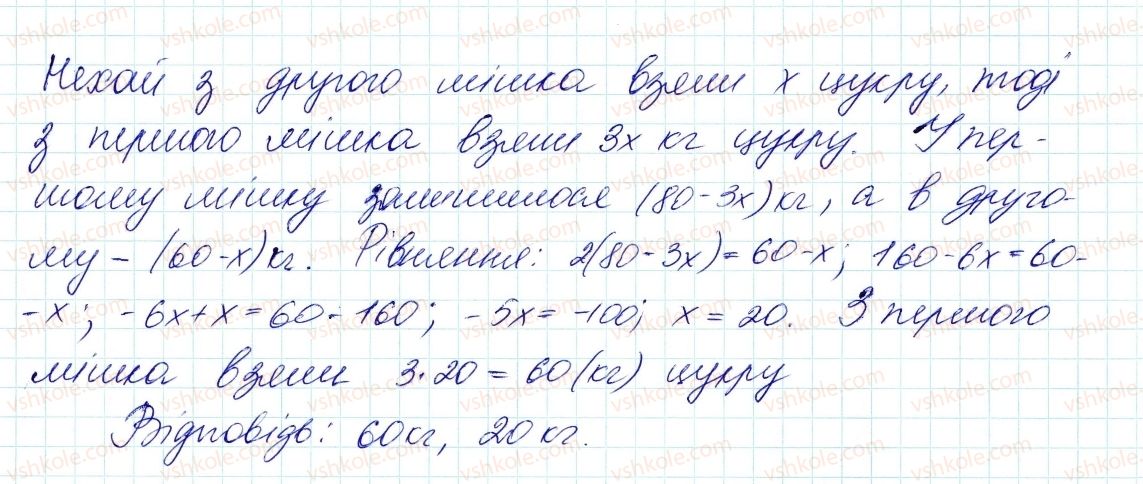 Нехай з другого мішка взяли х цукру, тоді
з першого мішка взяли 3х кг цукру. У пер-
шому мішку залишилося (80-3х)кг, а в друго-
му - (60-х)кг. Рівняння: 2(80-3х)=60-х; 160-6х=60-
-х; -6х+х=60-160; -5х=-100; х=20. З першого
мішка взяли 3·20=60(кг) цукру
Відповідь: 60кг, 20кг.